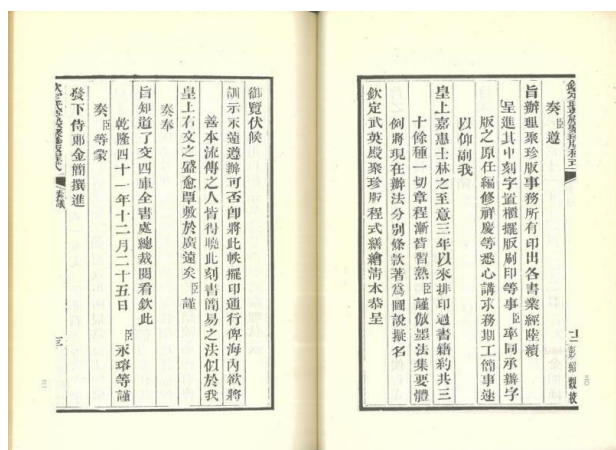 欽定武英殿聚珍版程式
奏臣遵
旨辦理聚珍版事務所有印出各書業經陸續
呈進其中刻字置櫃擺版刷印等事臣率同承辦字
版之原任編修祥慶等悉心講求務期工簡事速
以仰副我
皇上嘉惠士林之至意三年以來排印過書籍約共三
十餘種一切章程漸皆習熟臣謹倣墨法集要體
例將現在辦法分別條款著為圖說擬名
欽定武英殿聚珍版程式繕繪清本恭呈
御覽伏候
訓示永遠遵辦可否即將此帙擺印通行俾海內欲將
善本流傳之人皆得曉此刻書簡易之法似於我
皇上右文之盛愈覃敷於廣遠矣臣謹
奏奉
旨知道了交四庫全書處總裁閱看欽此
乾隆四十一年十二月二十五日臣永瑢等謹
奏臣等蒙
發下侍郎金簡撰進
欽定武英殿聚珍版程式